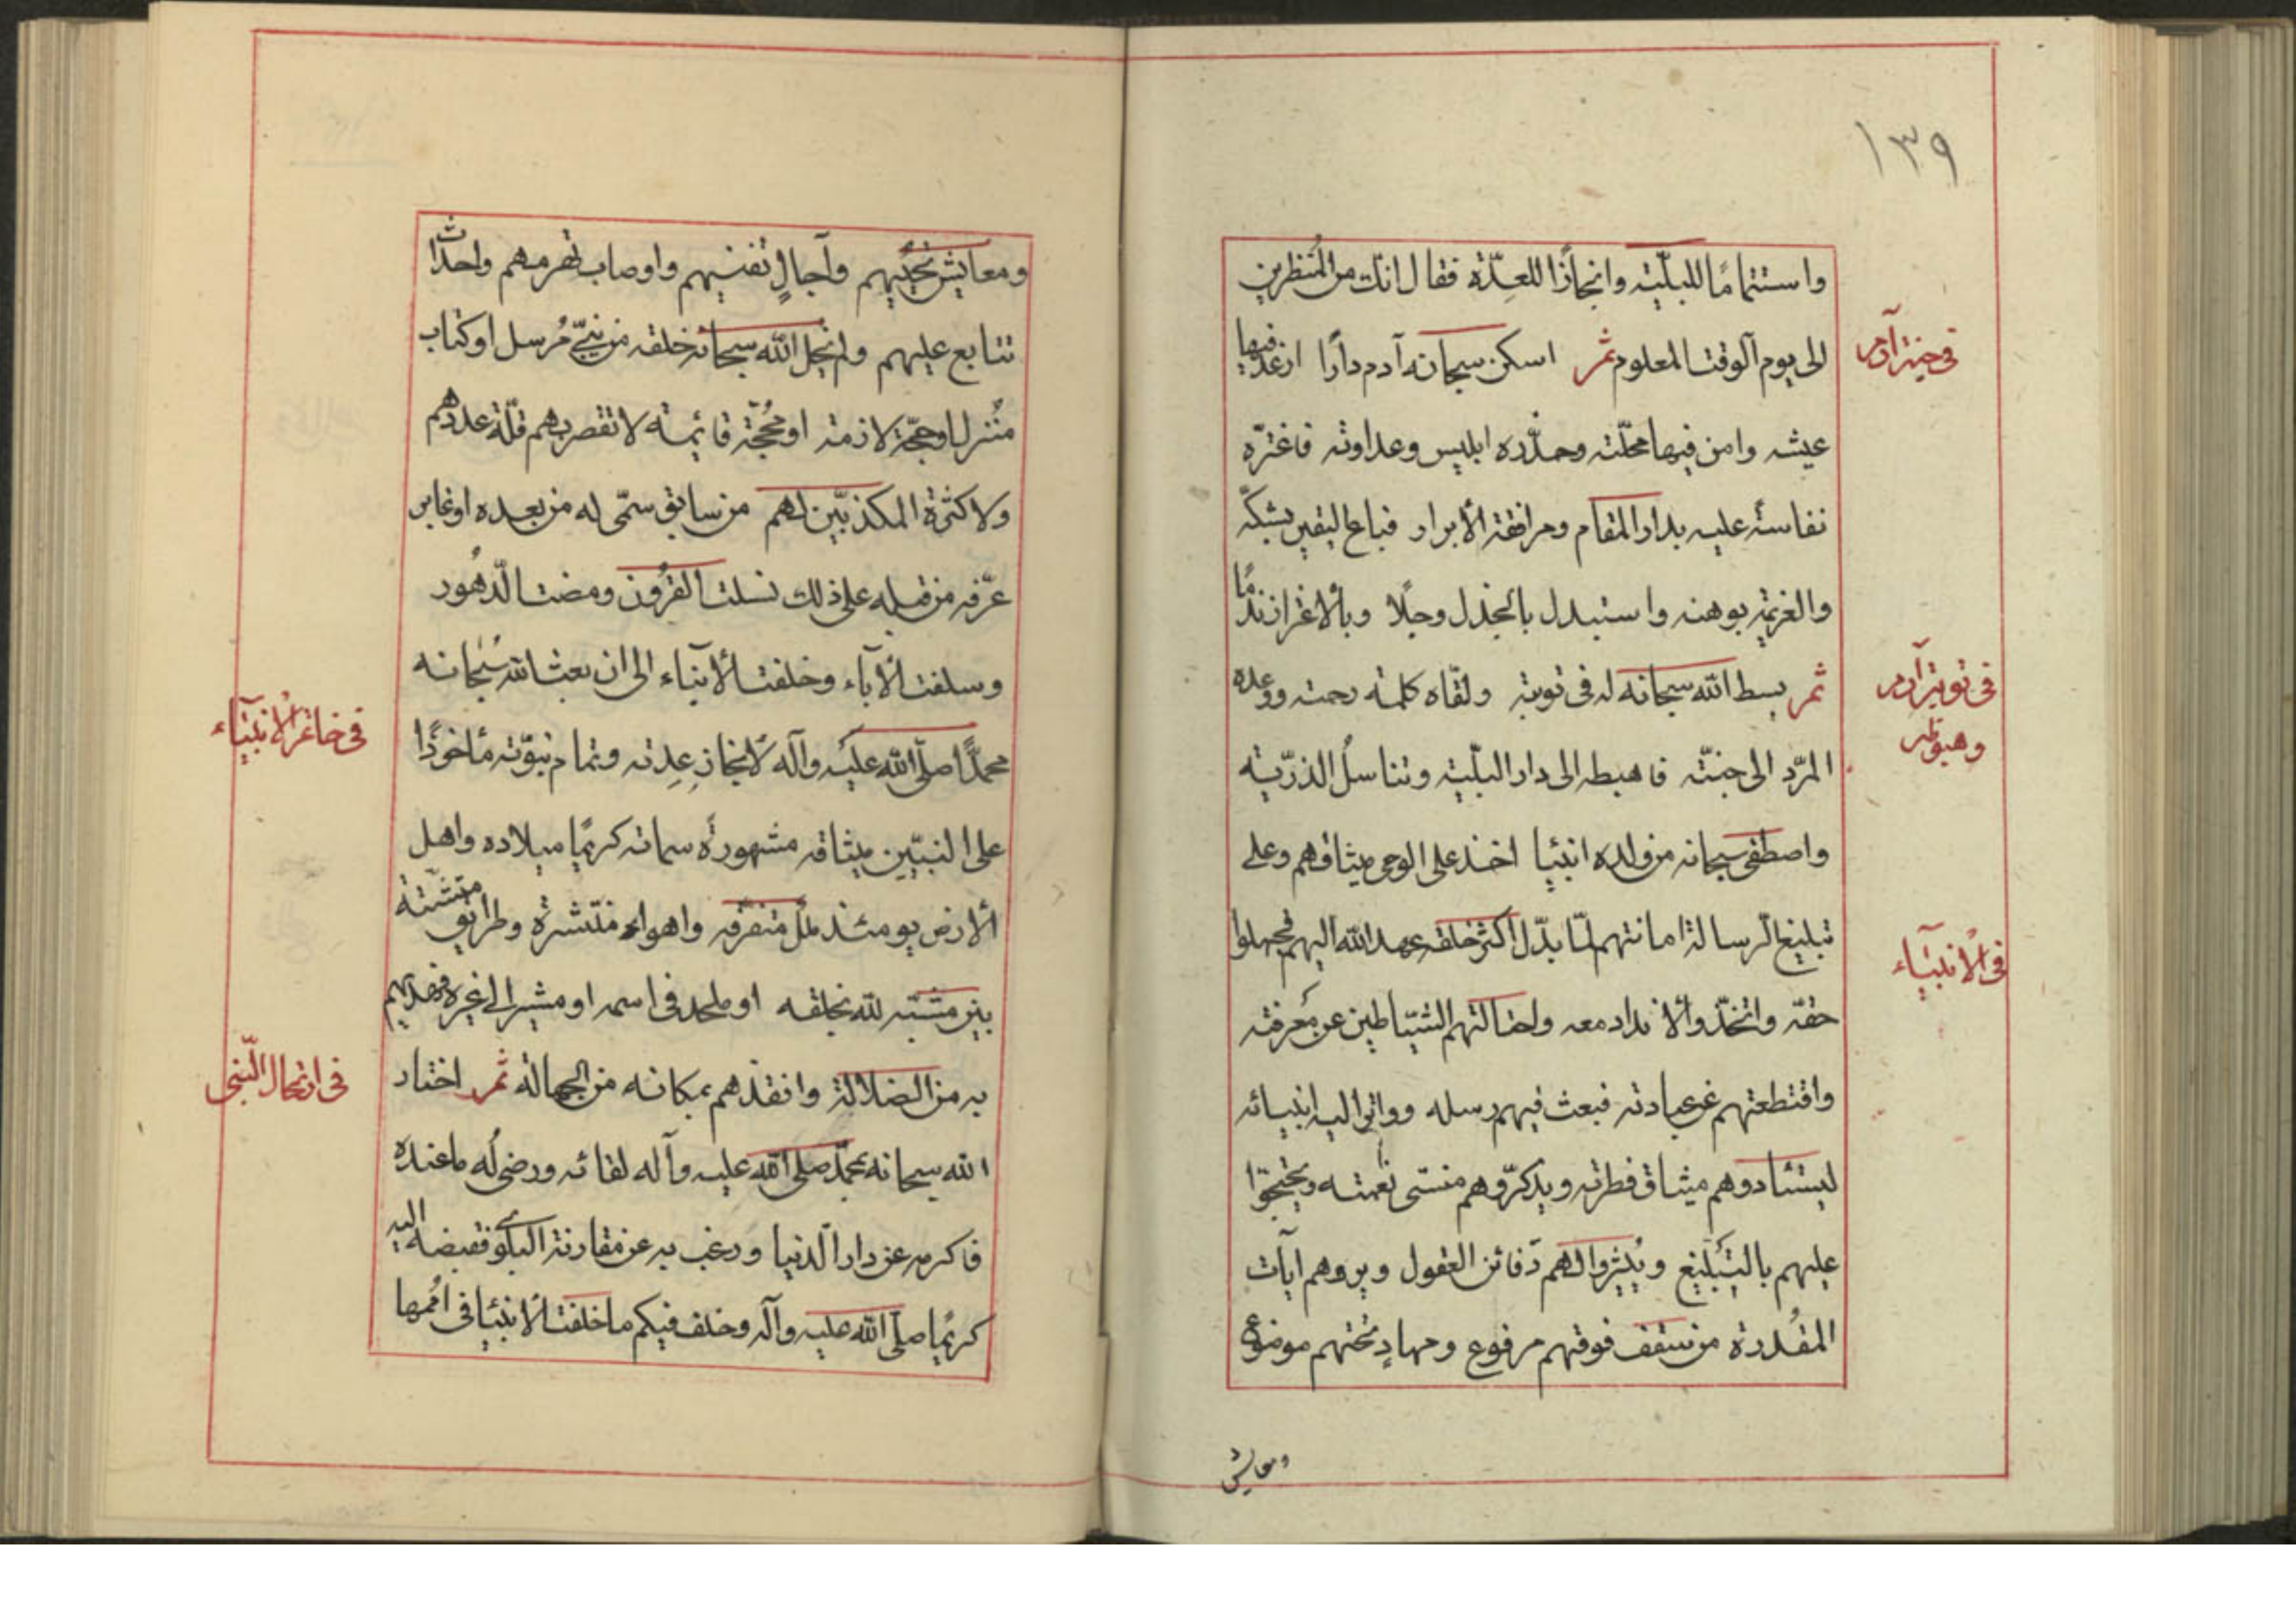 ١٣٩
واستتمامًا للبليّته وانجازًا للعِدّة فقال انك من المُنظرين
الى يوم الوقت المعلوم ثمر اسكن سبحانه آدم دارًا ارغد فيها
في جنة آدم
عيشه وامن فيها محلّته وحذّره ابليس وعداوته فاغترّه
نفاسةً عليه بدار المقام ومرافقة الأبرار فباع اليقين بشكّه
والعزيمة بوهنه واستبدل بالجذل وجلًا وبالاغترار ندمًا
ثمر بسط الله سبحانه له في توبته ولقّاه كلمة رحمته ووعده
في توبة آدم
وهبوطه
المرّد الى جنتّه فاهبطه الى دار البليّته وتناسلُ الذرّيته
واصطفى سبحانه من ولده انبئيا اخذ على الوحي ميثاقهم وعلى
تبليغ الرسالة امانتهم لمّا بدّل اكثر خلقه عهد الله اليهم فجهلوا
في الأنبياء
حقّه واتخذّوا الأنداد معه واحتالتهم الشيّاطين عن مَعرفته
واقتطعتهم عن عبادته فبعث فيهم رسله وواتر اليه انبيائه
ليستادوهم ميثاق فطرته ويذكرّوهم منسّى نعمته ويحتجّوا
عليهم بالتبَليغ ويُثيروا لهم دَفائن العقول ويروهم ايآت
المقُدرة من سقف فوقهم مرفوع ومهادٍ تحتهم موضوع
ومعايش
ومعايش تحُييهم وآجالٍ تفنيهم واوصاب تهرمهم واحداث
تتابع عليهم ولم يخل الله سبحانه خلقه من نبيّ مُرسل او كتاب
مُنزل او حجّة لازمته او محجّة قائمته لا تقصر بهم قلّة عددهم
ولا كثرة المكذبيّن لهم من سابق سمّى له من بعده او غابر
عرّفه من قبله على ذلك نسلت القرُون ومضت الدّهُور
وسلفت الآباء وخلفت الأبناء الى ان بعث الله سُبحانه
محمدًّا صلّى الله عليه وآله لانجاز عِدِته وتمام نبوّته مأخوذًا
في خاتم الأنبياء
على النبيّين ميثاقه مشهورةً سماته كريمًا ميلاده واهل
ألارض يومئذ مللٌ متفرقّه واهواء منتّشرة وطرائق متشتّتة
بين مشّبته لله بخلقه او ملحد في اسمه او مشير الى غيره فهداهم
به من الضلالة وانقذهم بمكانه من الجهالة ثمر اختار
في ارتحال النّبي
الله سبحانه بمحمّد صلى الله عليه وآله لقائه ورضى له ما عنده
فاكرمه عن دار الدّنيا ورغب به عن مقارنة البلوى فقبضه اليه
كريمًا صلّى الله عليه وآله وخلف فيكم ما خلفت الأنبئيا في امُمها